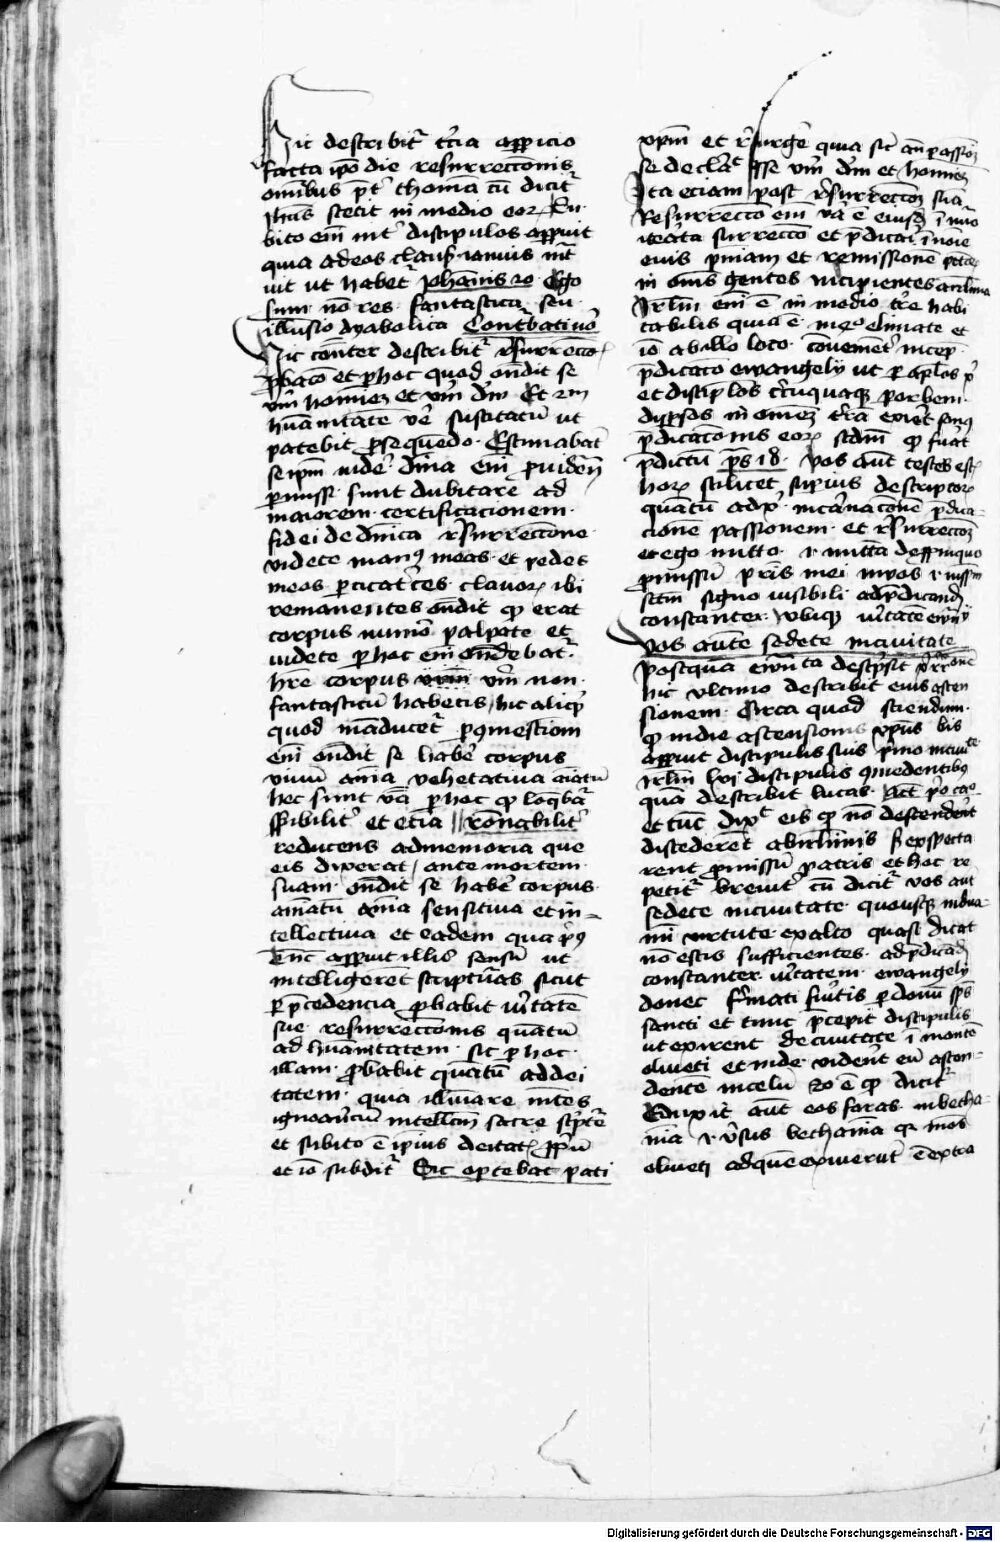 Hic describitr tcia apparicio
facta ipo die resurrecconis
omibus pt thoma cu dicitr
Ihus stetit in medio eor Su
bito em int discipulos apparuit
quia ad eos clausis ianuis int
uit ut habetr Iohannis 20 Ego
sum no res fantastica seu
illusio dyabolica Conturbati vo
Hic conter describitr resurrecco
pbaco et per hoc quod ondit se
vm homiem et vm dm Et 2m
huanitatem ve suscitatu ut
patebit psequendo Estimabat
se spm vide dina em prudeti
pmiss sunt dubitare ad
maiorem certificacionem
fidei de dnica resurreccone
videte manus meas et pedes
meos pcicatces clavor ibi
remanentes ondit qp erat
corpus numo palpate et
videte per hoc em ondebat
hre corpus vm non
fantasticu habetis hic aliqd
quod maducetr per comestiom
em ondit se habe corpus
vivu aima vegetativa aiatu
hec sunt va per hoc qp loqbar
ssibilitr et ecia ronabilitr
reducens ad memoria que
eis dixerat ante mortem
suam ondit se habe corpus
aimatu aima sensitiva et in
tellectiva et eadem qua pus
Tunc apparuit illis sensu ut
intelligeret scripturas sicut
per pcedencia probabit vitate
sue resurrecconis quatu
ad huanitatem sic per hoc
illam probabit quatu ad dei
tatem quia illuiare metes
ignoranciu intellcm sacre scpte
et subito e ipius deitatis ppriu
et io subditr Sic oportebat pati
xpm et resurge quia sic an passio
se declat esse vm dm et homiem
Ita eciam post resurreccoem sua
Resurrecco em va e eiusd i nuo
iterata surrecco et pdicari i noie
eius pniam et remissione petor
in oms gentes incipientes a Ierlima
Irlm em e in medio tre habi
tabilis quia e in qo climate et
io ab illo loco conuenietr incep
pdicaco ewangely ut per aplos
et discipulos circuquaque per orbem
dyspsos in omem tra exiet sonus
pdicaconis eor scdm qp fuat
pdictu ps 18 vos aut testes est
hor scilicet supius descriptor
quatu ad xp incarnacone produc
cione passionem et resurreccoem
et ego mitto i mittam de ppinquo
pmissu pris mei in vos i spm
sctm signo visibili ad pdicand
constanter ubique vitate ewangly
Vos aute sedete in civitate
Postqua ewnta descpsit resurrecone
hic ultimo describit eius ascen
sionem Circa quod sciendum
qp in die ascensionis xpus bis
apparuit discipulis suis pmo in civite
Irlm ubi discipulis comedentibus
qua describit lucas Act po cao
et tuc dixt eis qp no descendent
discederet ab irlimis sed exspecta
rent pmissu patris et hoc re
petitr brevitr cu dicitr vos aut
sedete in civitate quousque indua
mi virtute ex alto quasi dicat
no estis sufficientes ad pdicad
constanter vitatem ewangely
donec firmati fuitis per donu sps
sancti et tunc pcepit discipulis
ut exirent de civitate i monte
oliveti et inde vident eu ascen
dente in celu Ido e qp dicitr
Eduxit aut eos foras in betha
nia i vsus bethania qr mos
oliveti ad que exiverut e extra
Digitalisierung gefördert durch die Deutsche Forschungsgemeinschaft - DFG